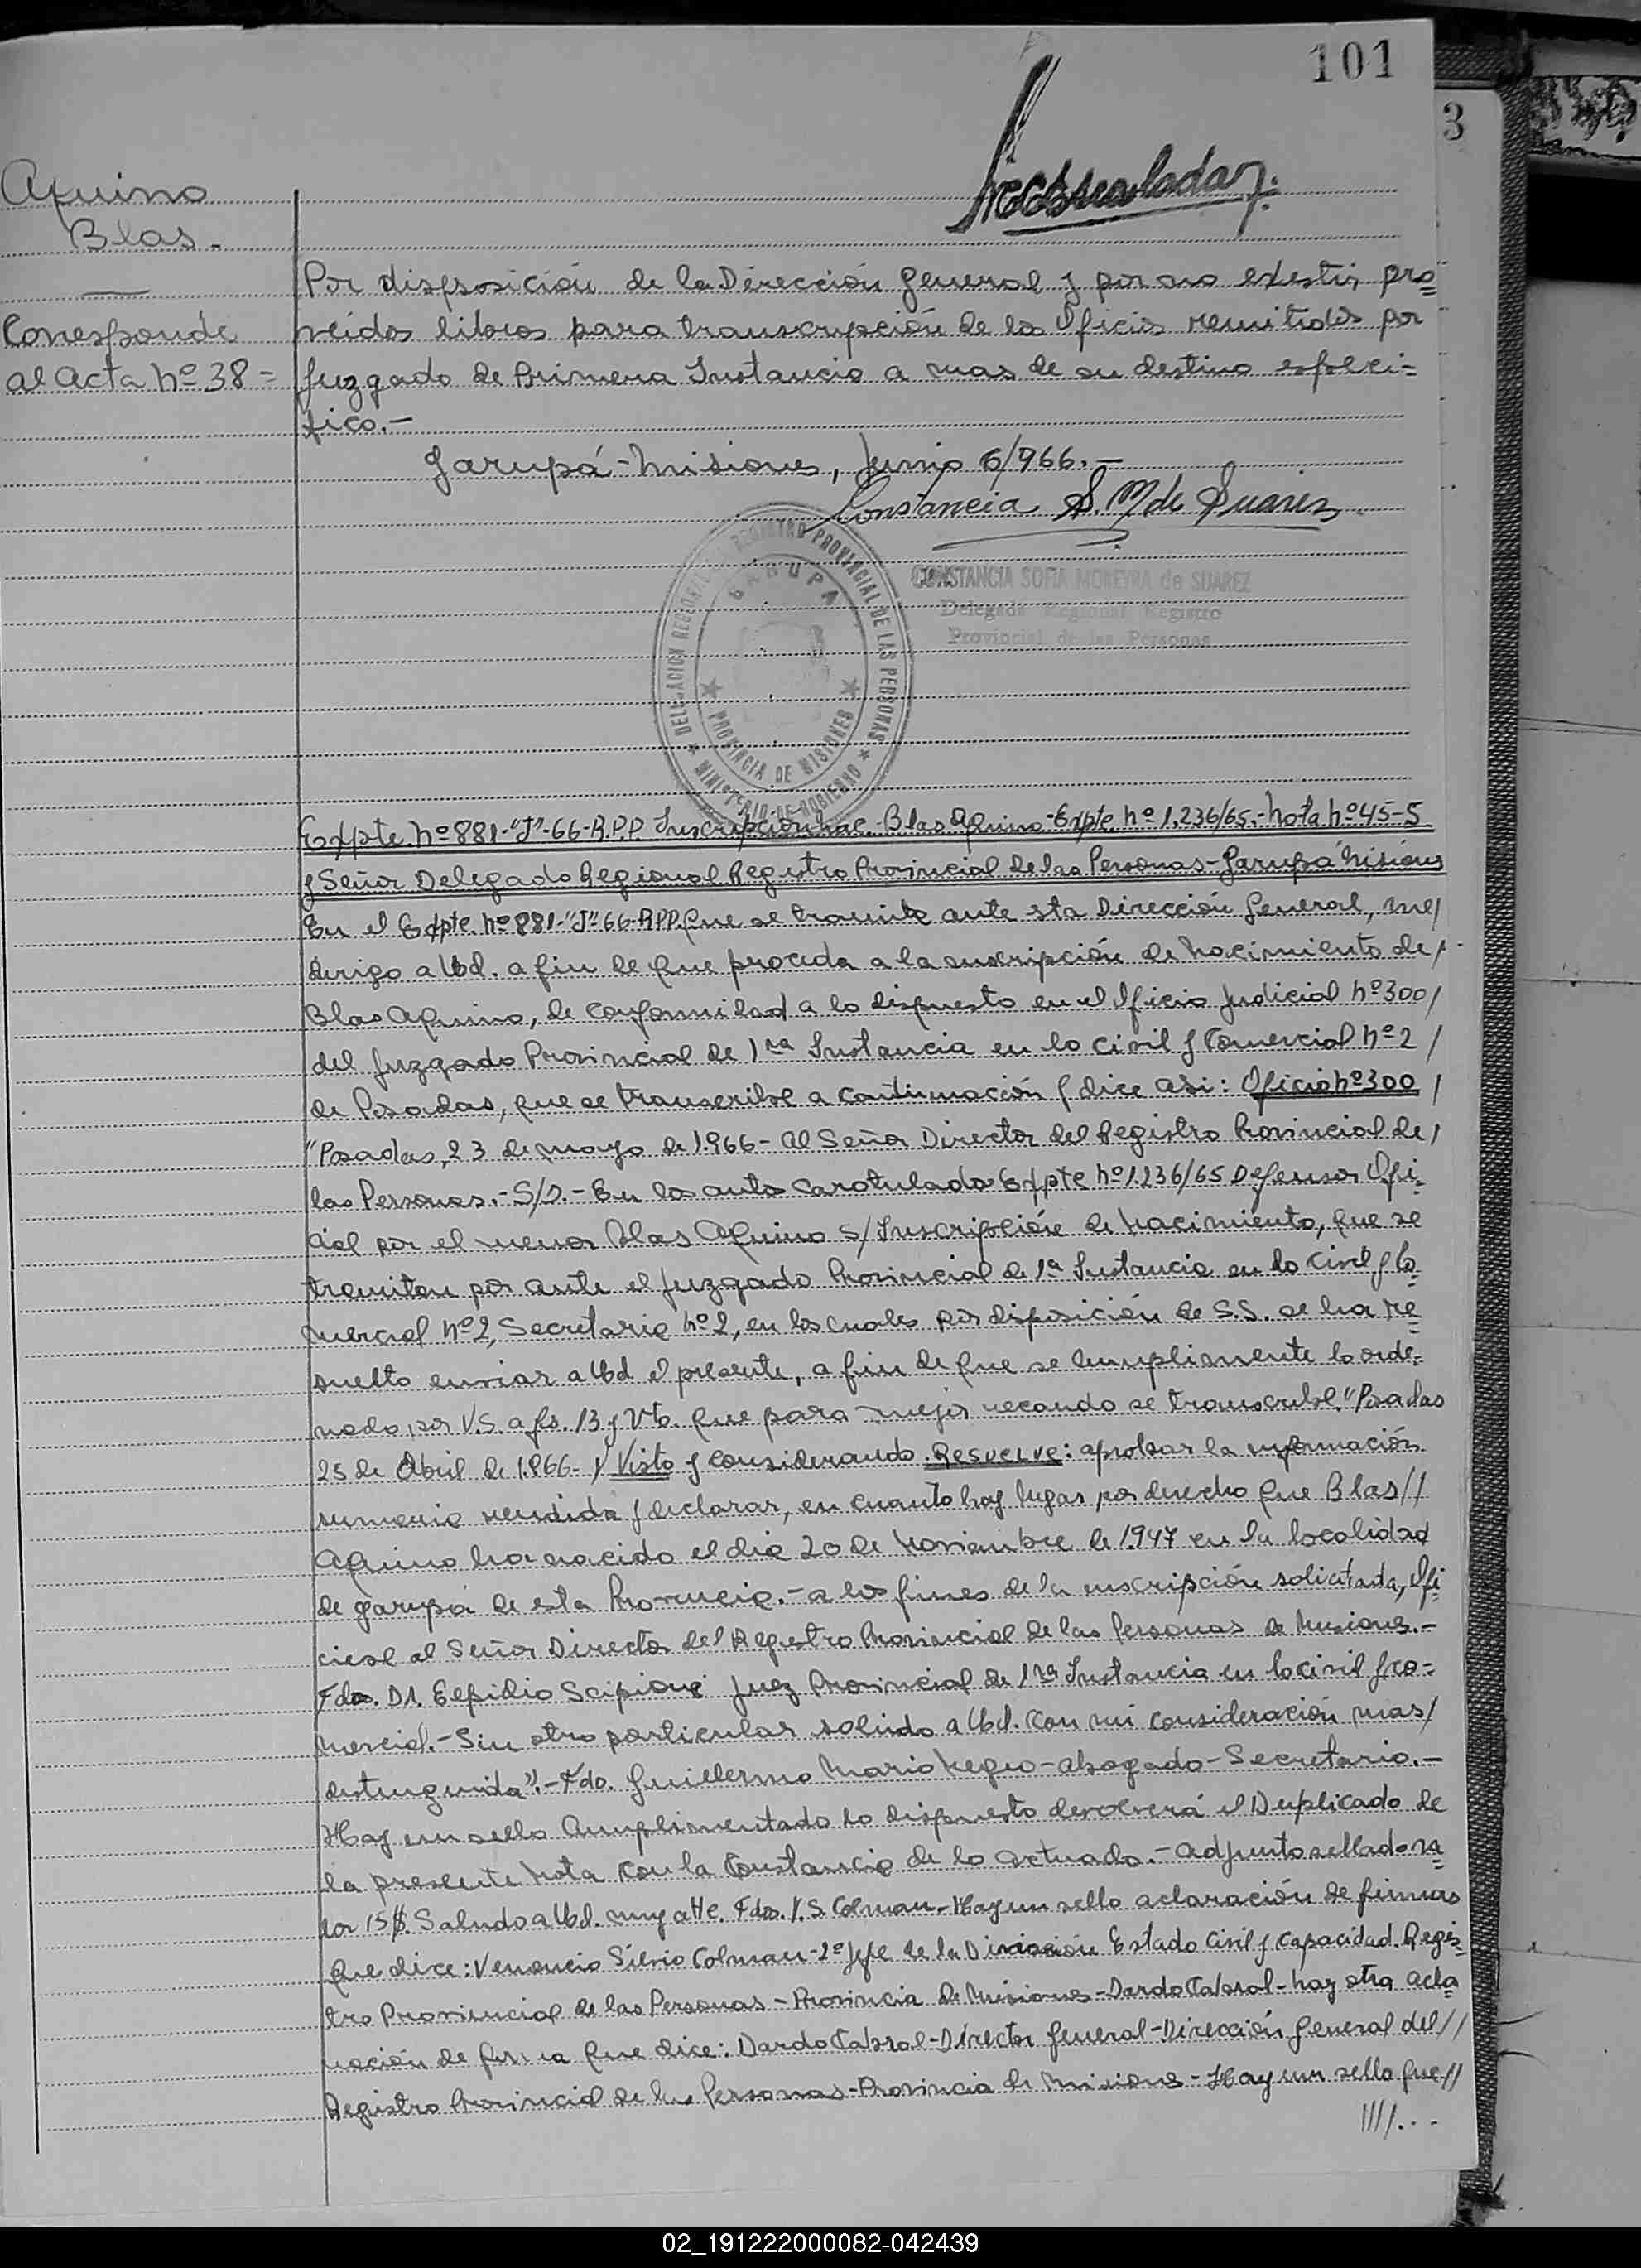 101
3
Aquino
Blas.-
Corresponde
al Acta Nº 38=
Por disposición de la Dirección General y por no existir pro=
veídos libros para transcripción de los Oficios remitidos por
Juzgado de Primera Instancia a mas de su destino especí=
fico.-
Garupá-Misiones, Junio 6/966.-
Constancia S. M de Suarez
CONSTANCIA SOFIA MOREYRA de SUAREZ
Delegada Regional Registro
Provincial de las Personas
DELEGACION REGIONAL REGISTRO PROVINCIAL DE LAS PERSONAS
GARUPA
PROVINCIA DE MISIONES
MINISTERIO DE GOBIERNO
Expte. Nº 881-"J"-66-R.P.P. Inscripción Nac. Blas Aquino-Expte. Nº 1.236/65.-Nota Nº 45-5
y Señor Delegado Regional Registro Provincial de las Personas-Garupá Misiones
En el Expte. Nº 881-"J"-66-RPP. que se tramita ante sta Dirección General, me/
dirigo a Ud. a fin de que proceda a la inscripción de Nacimiento de/.
Blas Aquino, de conformidad a lo dispuesto en el Oficio Judicial Nº 300/
del Juzgado Provincial de 1ra Instancia en lo Civil y Comercial Nº 2/
de Posadas, que se transcribe a continuación y dice asi: Oficio Nº 300/
"Posadas, 23 de mayo de 1.966- Al Señor Director del Registro Provincial de/
las Personas.- S/D.- En los autos caratulados Expte Nº 1.236/65 Defensor Ofi-
cial por el menor Blas Aquino S/Inscripción de Nacimiento, que se
tramitan por ante el Juzgado Provincial de 1ª Instancia en lo Civil y Co=
mercial Nº 2, Secretaria Nº 2, en los cuales por disposición de S.S. se ha re=
suelto enviar a Ud el presente, a fin de que se cumplimente lo orde-
nado por V.S. a fs. 13 y Vto. que para mejor recaudo se transcribe. "Posadas
25 de Abril de 1.966- y Visto y considerando Resuelve: aprobar la información
sumaria rendida y declarar, en cuanto hay lugar por derecho que Blas//
Aquino ha nacido el dia 20 de Noviembre de 1.947 en la localidad
de Garupá de esta Provincia.- a los fines de la inscripción solicitada, Ofi
ciese al Señor Director del Registro Provincial de las Personas de Misiones.-
Fdo. Dr. Elpidio Scipioni Juez Provincial de 1ra Instancia en lo Civil y Co=
mercial.- Sin otro particular saludo a Ud. con mi consideración mas/
distinguida".- Fdo. Guillermo Mario Negro-Abogado-Secretario.-
Hay un sello Cumplimentado lo dispuesto devolverá el Duplicado de
la presente Nota con la constancia de lo actuado.- Adjunto sellado va=
lor 15$. Saludo a Ud. muy atte. Fdo. V.S. Colman.-Hay un sello aclaración de firmas
que dice: Venancio Silvio Colman-2º Jefe de la División Estado Civil y Capacidad. Regis=
tro Provincial de las Personas - Provincia de Misiones-Dardo Cabral-hay otra acla=
ración de firma que dice: Dardo Cabral-Director General-Dirección General del//
Registro Provincial de las Personas-Provincia de Misiones-Hay un sello que//
////...
02_191222000082-042439